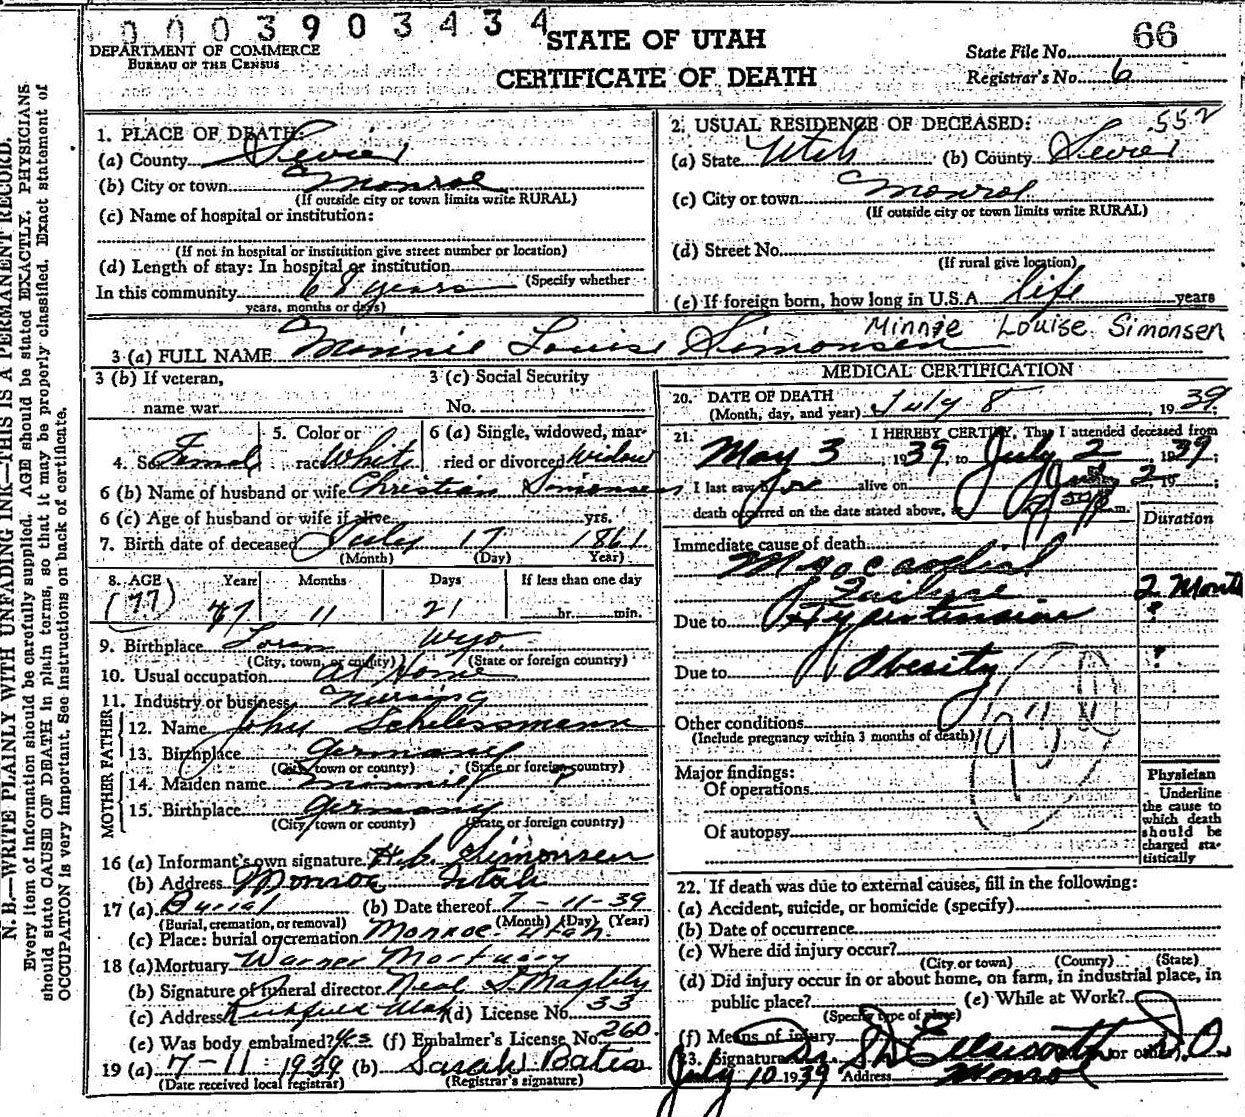 0003903434
DEPARTMENT OF COMMERCE
BUREAU OF THE CENSUS
STATE OF UTAH
CERTIFICATE OF DEATH
State File No. 66
Registrar's No. 6
N. B.—WRITE PLAINLY WITH UNFADING INK—THIS IS A PERMANENT RECORD.
Every item of information should be carefully supplied. AGE should be stated EXACTLY. PHYSICIANS
should state CAUSE OF DEATH in plain terms, so that it may be properly classified. Exact statement of
OCCUPATION is very important. See instructions on back of certificate.
1. PLACE OF DEATH:
(a) County Sevier
(b) City or town Monroe
(If outside city or town limits write RURAL)
(c) Name of hospital or institution:
(If not in hospital or institution give street number or location)
(d) Length of stay: In hospital or institution
(Specify whether
In this community 68 years
years, months or days)
2. USUAL RESIDENCE OF DECEASED: 552
(a) State Utah (b) County Sevier
(c) City or town Monroe
(If outside city or town limits write RURAL)
(d) Street No.
(If rural give location)
(e) If foreign born, how long in U.S.A. life years
Minnie Louise Simonsen
3 (a) FULL NAME Minnie Louise Simonsen
3 (b) If veteran,
name war
3 (c) Social Security
No.
4. Sex Femal
5. Color or
race White
6 (a) Single, widowed, mar-
ried or divorced Widow
6 (b) Name of husband or wife Christian Simonsen
6 (c) Age of husband or wife if alive yrs.
7. Birth date of deceased July 17 1861
(Month) (Day) Year)
8. AGE Year Months Days If less than one day
(77) 77 11 21 hr. min.
9. Birthplace Wyo.
(City, town, or county) (State or foreign country)
10. Usual occupation at Home
11. Industry or business Nursing
FATHER
12. Name John Schlessmann
13. Birthplace Germany
(City, town or county) (State or foreign country)
MOTHER
14. Maiden name Minnie ?
15. Birthplace Germany
(City, town or county) (State or foreign country)
16 (a) Informant's own signature Simonsen
(b) Address Monroe Utah
17 (a) Burial (b) Date thereof 7-11-39
(Burial, cremation, or removal) (Month) (Day) (Year)
(c) Place: burial or cremation Monroe Utah
18 (a) Mortuary Warner Mortuary
(b) Signature of funeral director Neal S. Magleby
(c) Address Richfield Utah (d) License No. 33
(e) Was body embalmed? Yes (f) Embalmer's License No. 260
19 (a) 7-11 1939 (b) Sarah Bates
(Date received local registrar) (Registrar's signature)
MEDICAL CERTIFICATION
20. DATE OF DEATH
(Month, day, and year) July 8, 1939
21. I HEREBY CERTIFY, That I attended deceased from
May 3, 1939, to July 2, 1939;
I last saw her alive on July 2 19 ;
death occurred on the date stated above, at m.
Duration
Immediate cause of death
Myocardial
Failure 2 Month
Due to Hypertension ?
Due to Obesity ?
Other conditions
(Include pregnancy within 3 months of death)
Major findings:
Of operations
Of autopsy
Physician
Underline
the cause to
which death
should be
charged sta-
tistically
22. If death was due to external causes, fill in the following:
(a) Accident, suicide, or homicide (specify)
(b) Date of occurrence
(c) Where did injury occur?
(City or town) (County) (State)
(d) Did injury occur in or about home, on farm, in industrial place, in
public place? (e) While at Work?
(Specify type of place)
(f) Means of injury
23. Signature Ellsworth (or other) D.O.
July 10 1939 Address Monroe